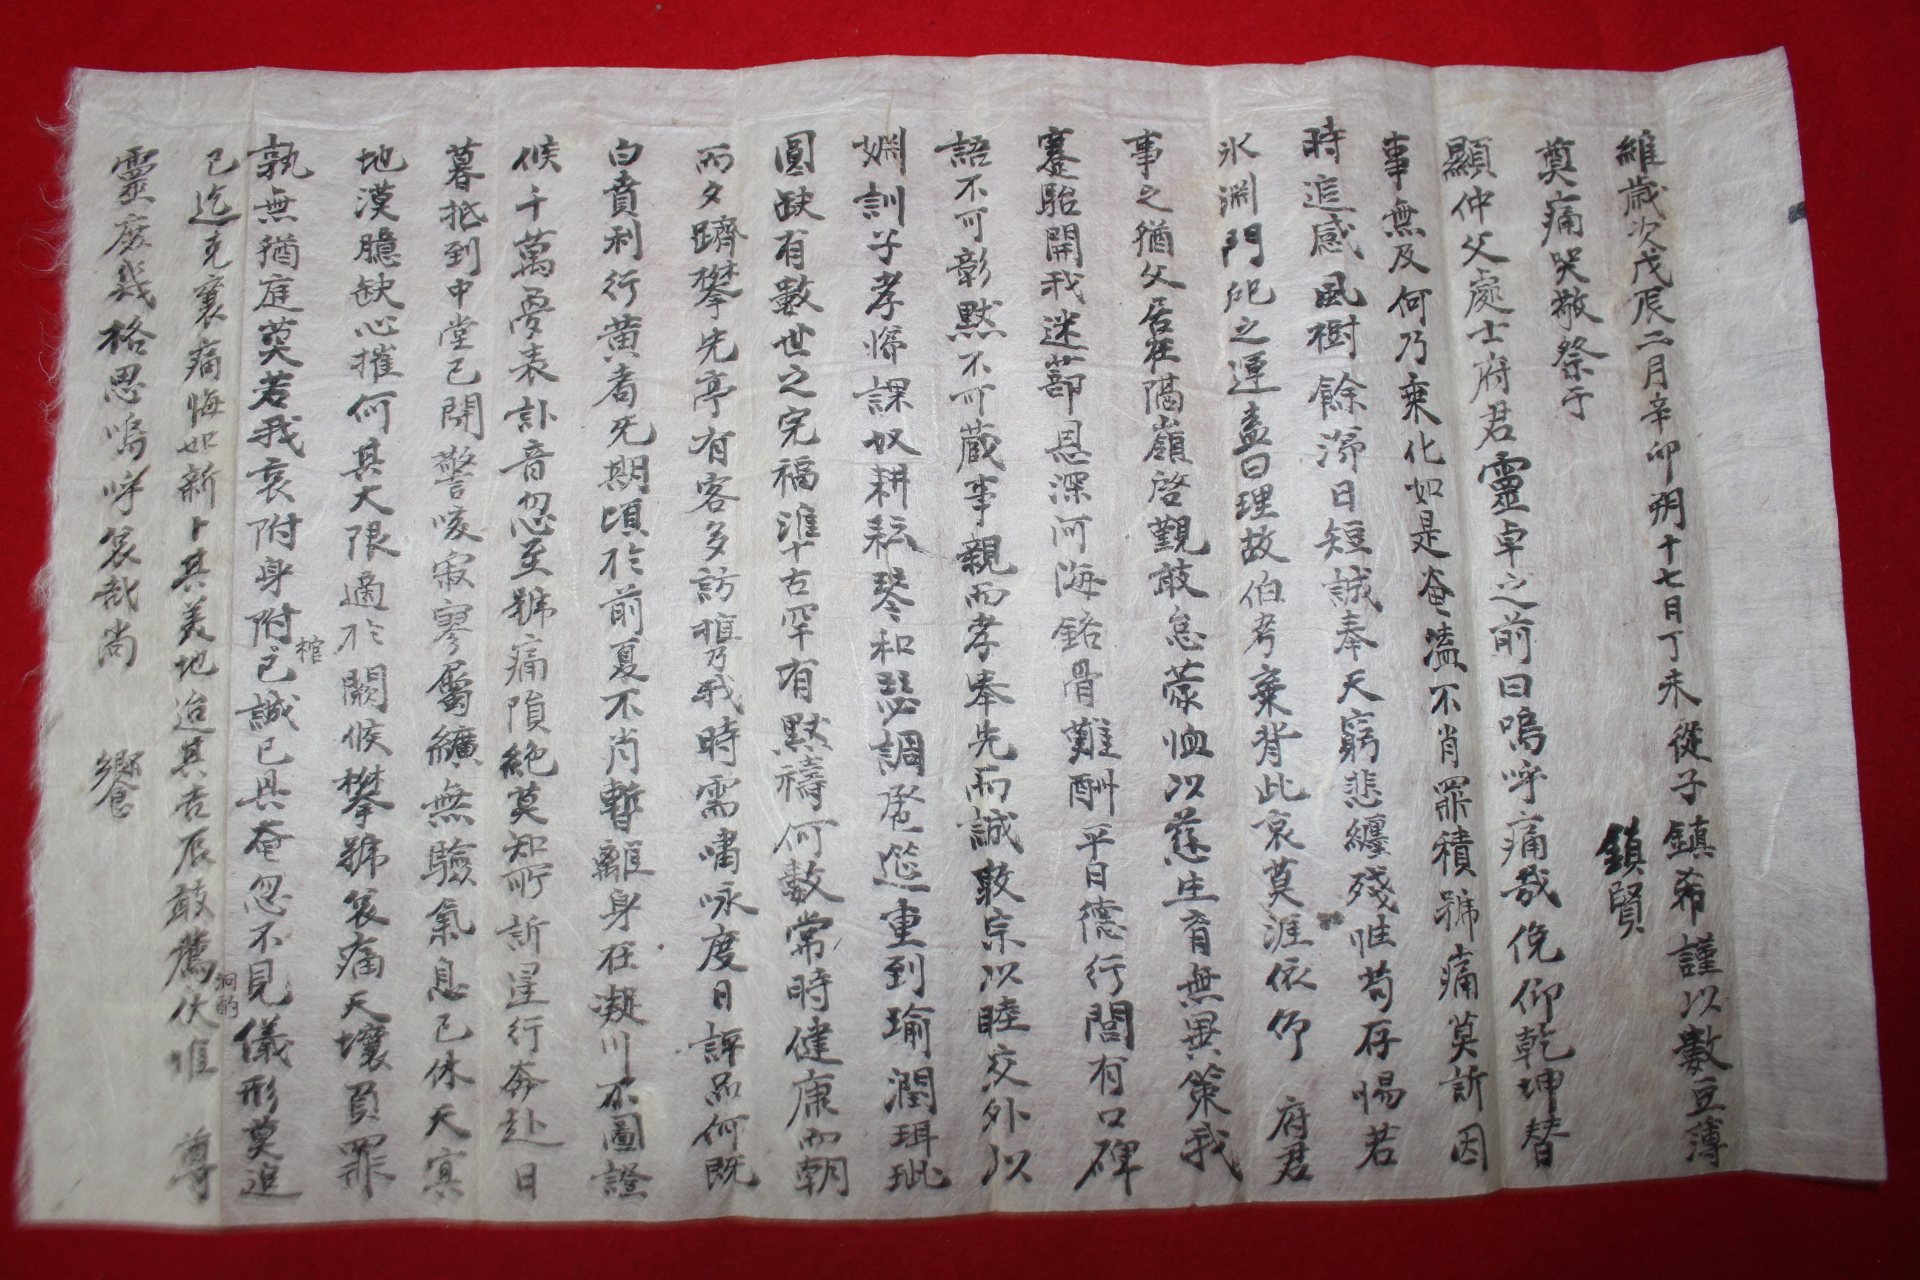 維歲次戊辰二月辛卯朔十七日丁未從子鎭希謹以數豆薄
鎭賢
奠痛哭敬祭于
顯仲父處士府君靈卓之前曰嗚呼痛哉俛仰乾坤替
事無及何乃乘化如是奄溘不肖罪積號痛莫訴因
時追感風樹餘 日短誠奉天窮悲纏殘惟苟存惕若
氷淵門 之運盍曰理故伯考棄背此哀莫涯依仰 府君
事之猶父居在隔嶺啓覲敢怠蒙恤以慈生育無異策我
蹇駘開我迷蔀恩深河海銘骨難酬平日德行閭有口碑
語不可彰默不可蔵事親而孝奉先而誠敦宗以睦交外以
婣訓子孝悌課奴耕耘琴和瑟調 莚重到瑜潤珥玼
圓缺有數世之完福淮古罕有默禱何數常時健康而朝
而夕躋攀先亭有客多訪 乃我時需嘯咏度日評品何旣
白賁利行黄耈死期頃於前夏不肖暫離身在凝川不圖證
候千萬 表訃音忽至號痛隕絶莫知所訴星行奔赴日
暮抵到中堂已閴警咳寂寥屬纊無驗氣息已休天 
地漠臆缺心摧何其大限適於闕候攀號哀痛天壤負罪
孰無猶庭奠若我哀附身附已誠已具奄忽不見儀形莫追
棺
已迄克襄痛悔如新卜其美地迨其吉辰敢薦伏惟 尊
泂酌
靈庶幾格思嗚呼哀哉尚 饗